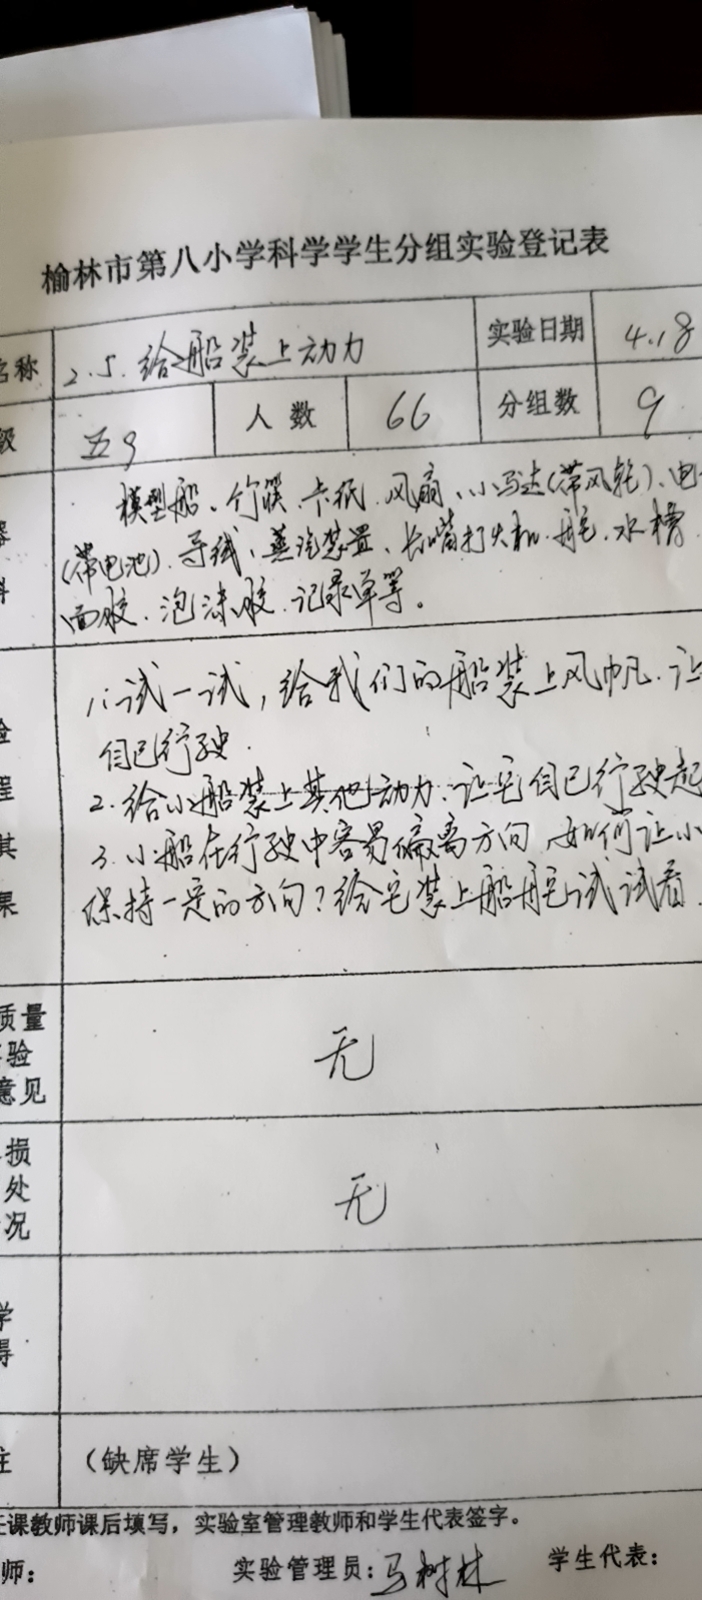 榆林市第八小学科学学生分组实验登记表
名称 2.5.给船装上动力 实验日期 4.18
级 五9 人数 66 分组数 9
模型船、竹筷、卡纸、风扇、小马达(带风轮)、电
器 (带电池)、导线、蒸汽装置、长嘴打火机、船舵、水槽
料 面胶、泡沫胶、记录单等。
1.试一试,给我们的船装上风帆.让
验 自己行驶.
程 2.给小船装上其他动力.让它自己行驶起
其 3.小船在行驶中容易偏离方向.如何让小
果 保持一定的方向?给它装上船舵试试看.
质量
验 无
意见
损
处 无
况
学
得
注 (缺席学生)
任课教师课后填写,实验室管理教师和学生代表签字。
师: 实验管理员:马树林 学生代表: